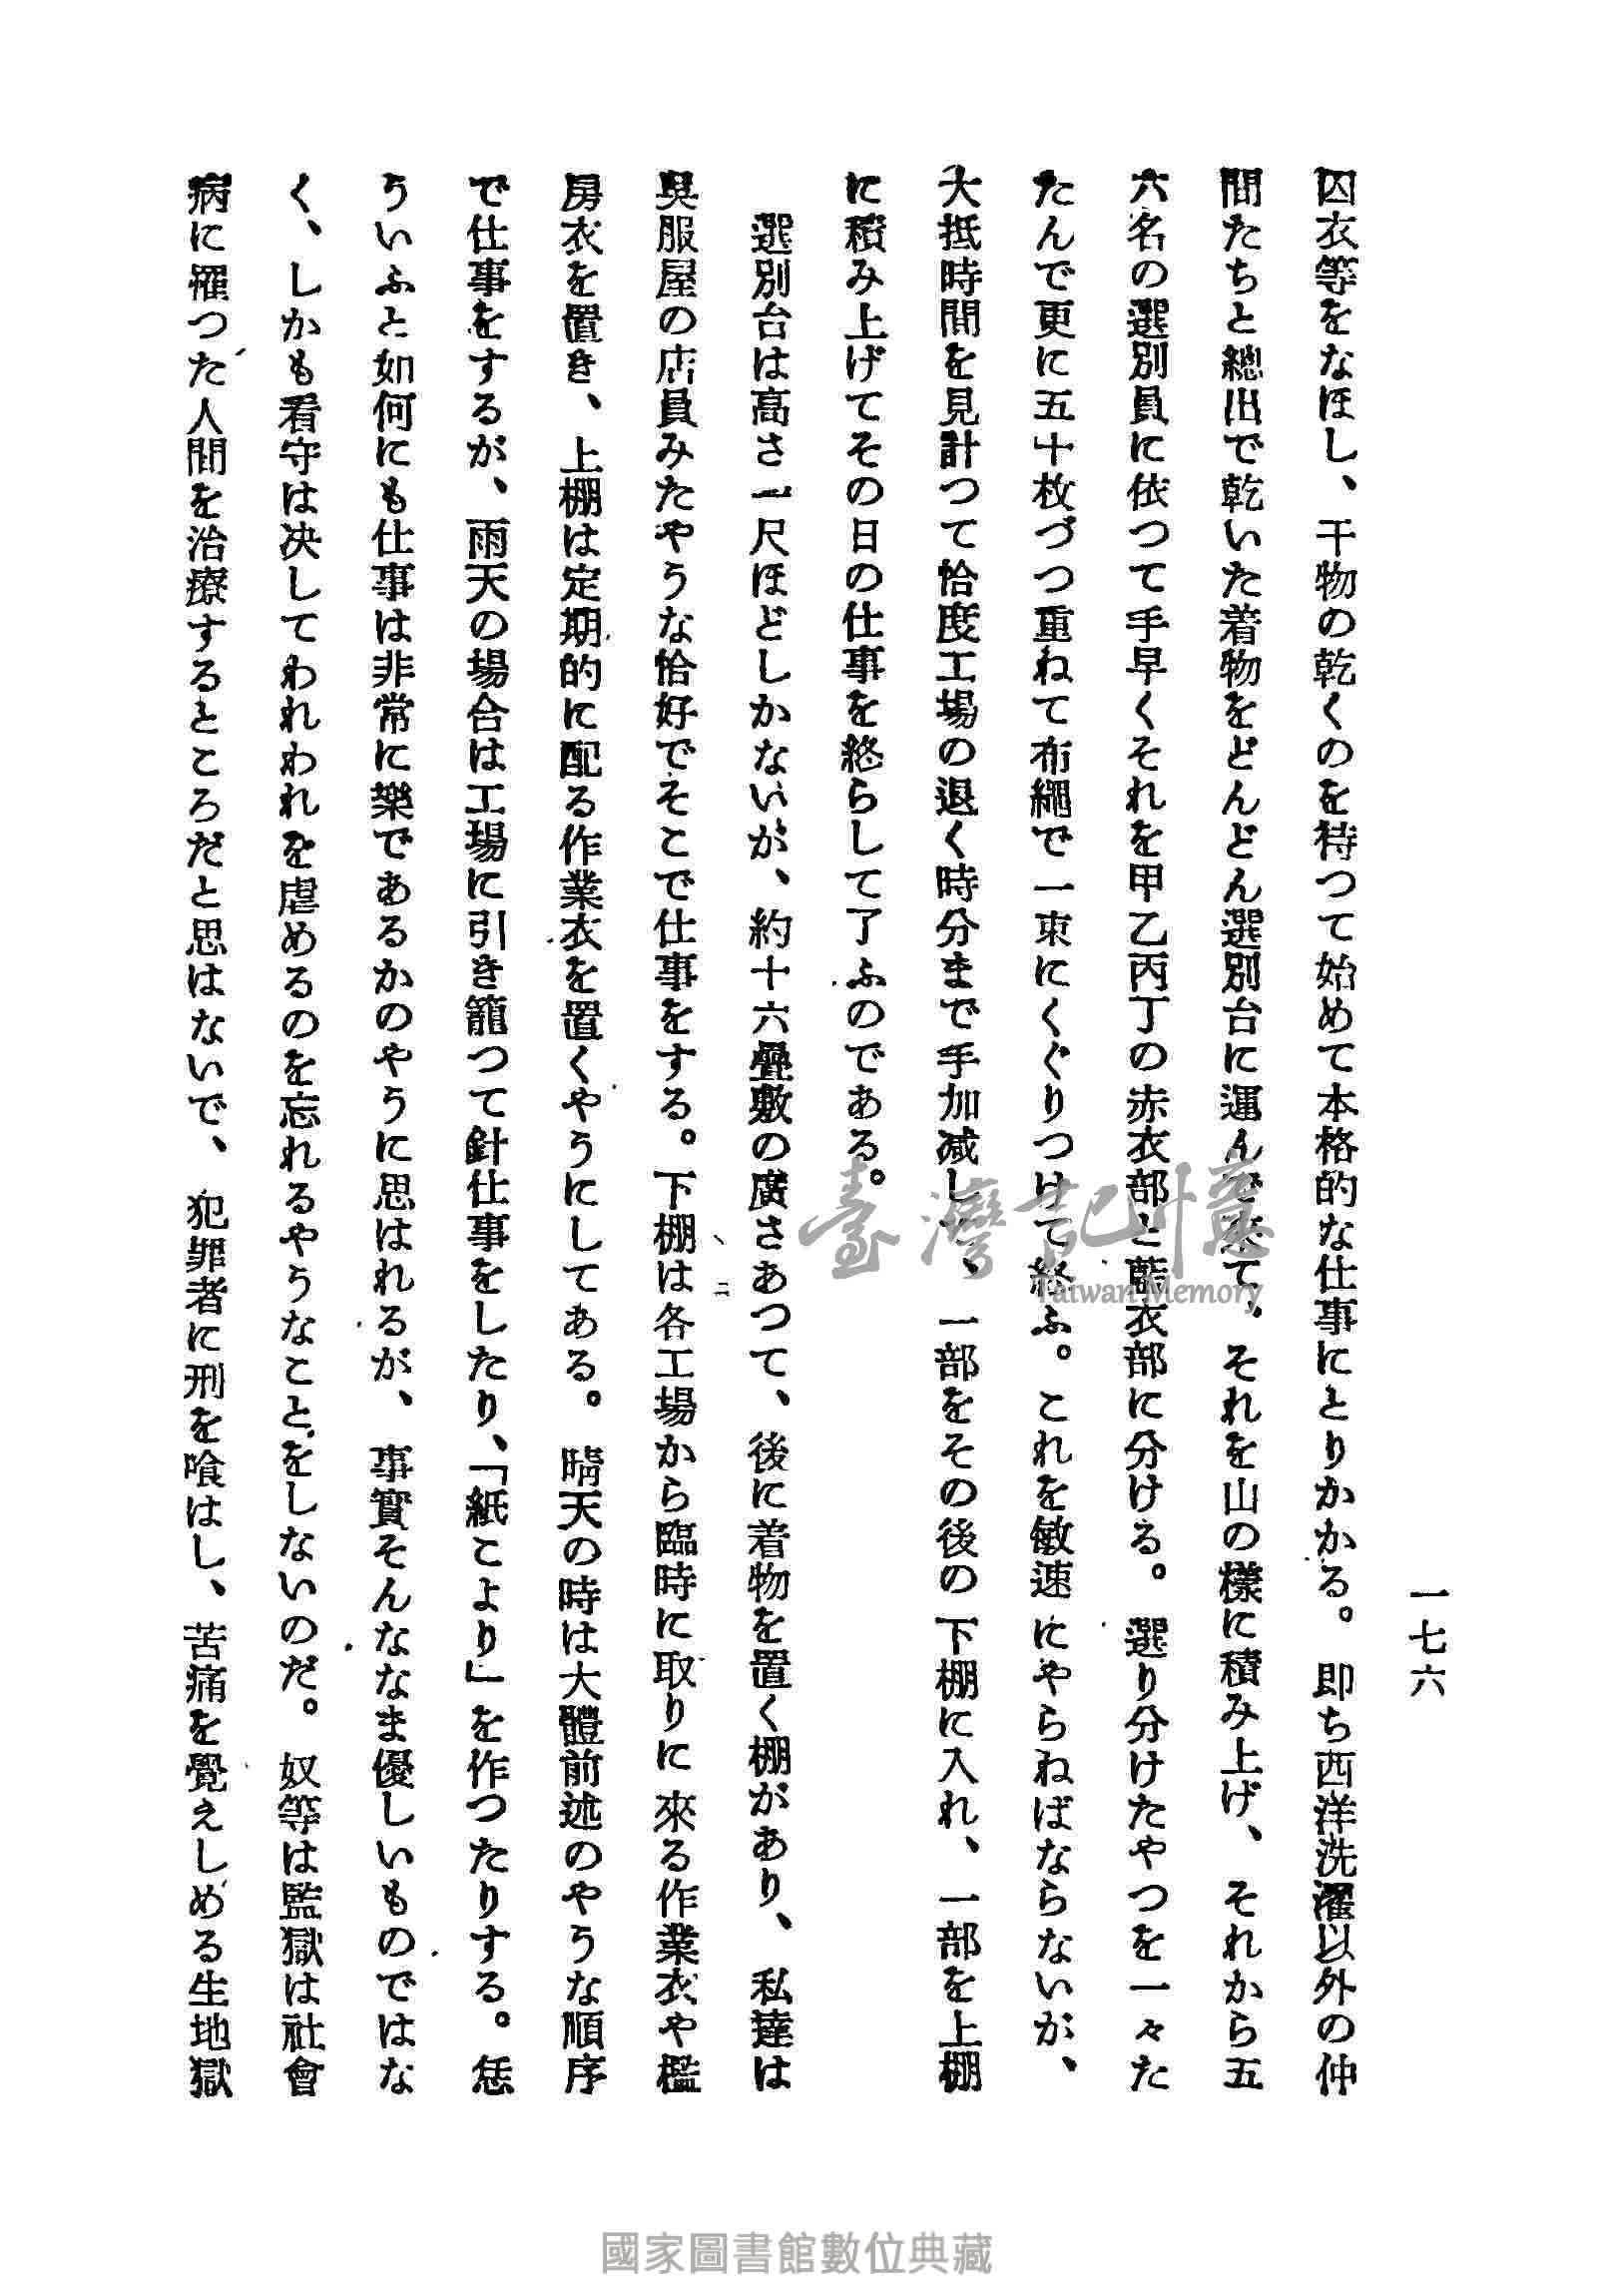 一七六
囚衣等をなほし、干物の乾くのを待つて始めて本格的な仕事にとりかかる。即ち西洋洗濯以外の仲
間たちと總出で乾いた着物をどんどん選別台に運んで來て、それを山の樣に積み上げ、それから五
六名の選別員に依つて手早くそれを甲乙丙丁の赤衣部と藍衣部に分ける。選り分けたやつを一々た
たんで更に五十枚づつ重ねて布繩で一束にくぐりつけて終ふ。これを敏速にやらねばならないが、
大抵時間を見計つて恰度工場の退く時分まで手加减して、一部をその後の下棚に入れ、一部を上棚
に積み上げてその日の仕事を終らして了ふのである。
選別台は高さ一尺ほどしかないが、約十六疊敷の廣さあつて、後に着物を置く棚があり、私達は
呉服屋の店員みたやうな恰好でそこで仕事をする。下棚は各工場から臨時に取りに來る作業衣や檻
房衣を置き、上棚は定期的に配る作業衣を置くやうにしてある。晴天の時は大體前述のやうな順序
で仕事をするが、雨天の場合は工場に引き籠つて針仕事をしたり、「紙こより」を作つたりする。恁
ういふと如何にも仕事は非常に樂であるかのやうに思はれるが、事實そんななま優しいものではな
く、しかも看守は决してわれわれを虐めるのを忘れるやうなことをしないのだ。奴等は監獄は社會
病に罹つた人間を治療するところだと思はないで、犯罪者に刑を喰はし、苦痛を覺えしめる生地獄
臺灣記憶
Taiwan Memory
國家圖書館數位典藏